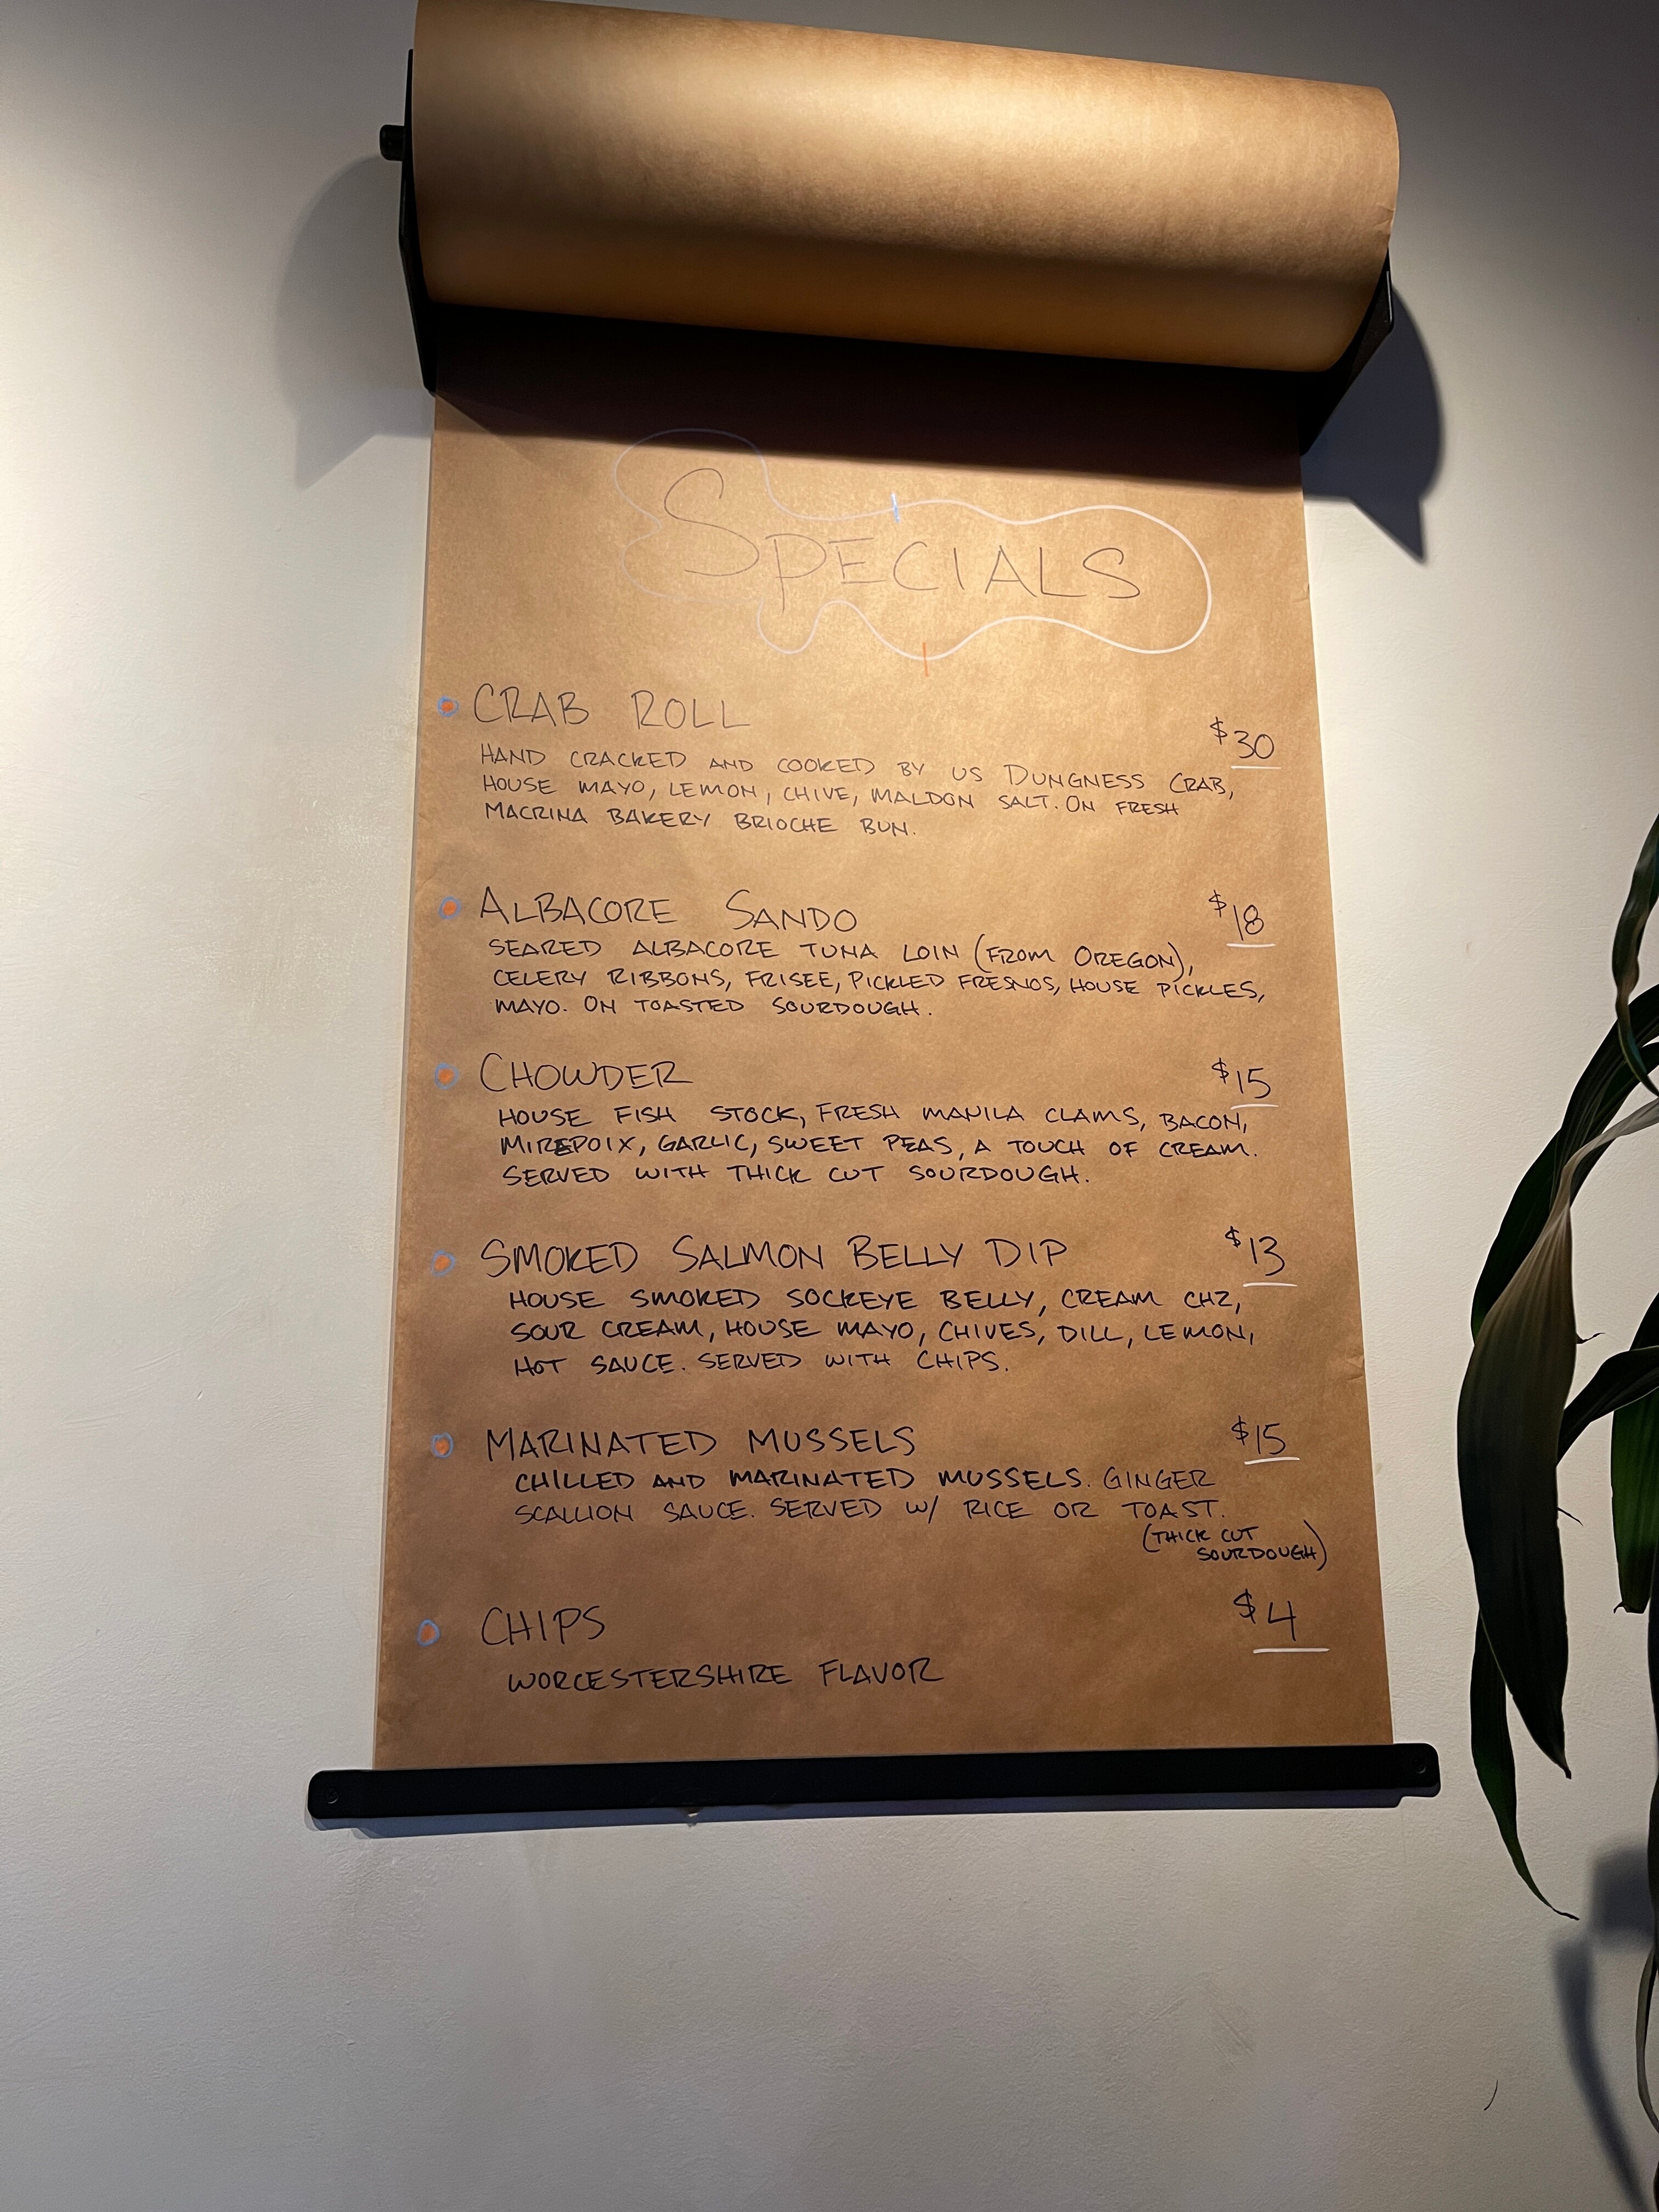 SPECIALS
CRAB ROLL
$30
HAND CRACKED AND COOKED BY US DUNGNESS CRAB,
HOUSE MAYO, LEMON, CHIVE, MALDON SALT. ON FRESH
MACRINA BAKERY BRIOCHE BUN.
ALBACORE SANDO
$18
SEARED ALBACORE TUNA LOIN (FROM OREGON),
CELERY RIBBONS, FRISEE, PICKLED FRESNOS, HOUSE PICKLES,
MAYO. ON TOASTED SOURDOUGH.
CHOWDER
$15
HOUSE FISH STOCK, FRESH MANILA CLAMS, BACON,
MIREPOIX, GARLIC, SWEET PEAS, A TOUCH OF CREAM.
SERVED WITH THICK CUT SOURDOUGH.
SMOKED SALMON BELLY DIP
$13
HOUSE SMOKED SOCKEYE BELLY, CREAM CHZ,
SOUR CREAM, HOUSE MAYO, CHIVES, DILL, LEMON,
HOT SAUCE. SERVED WITH CHIPS.
MARINATED MUSSELS
$15
CHILLED AND MARINATED MUSSELS. GINGER
SCALLION SAUCE. SERVED W/ RICE OR TOAST.
(THICK CUT
SOURDOUGH)
CHIPS
$4
WORCESTERSHIRE FLAVOR